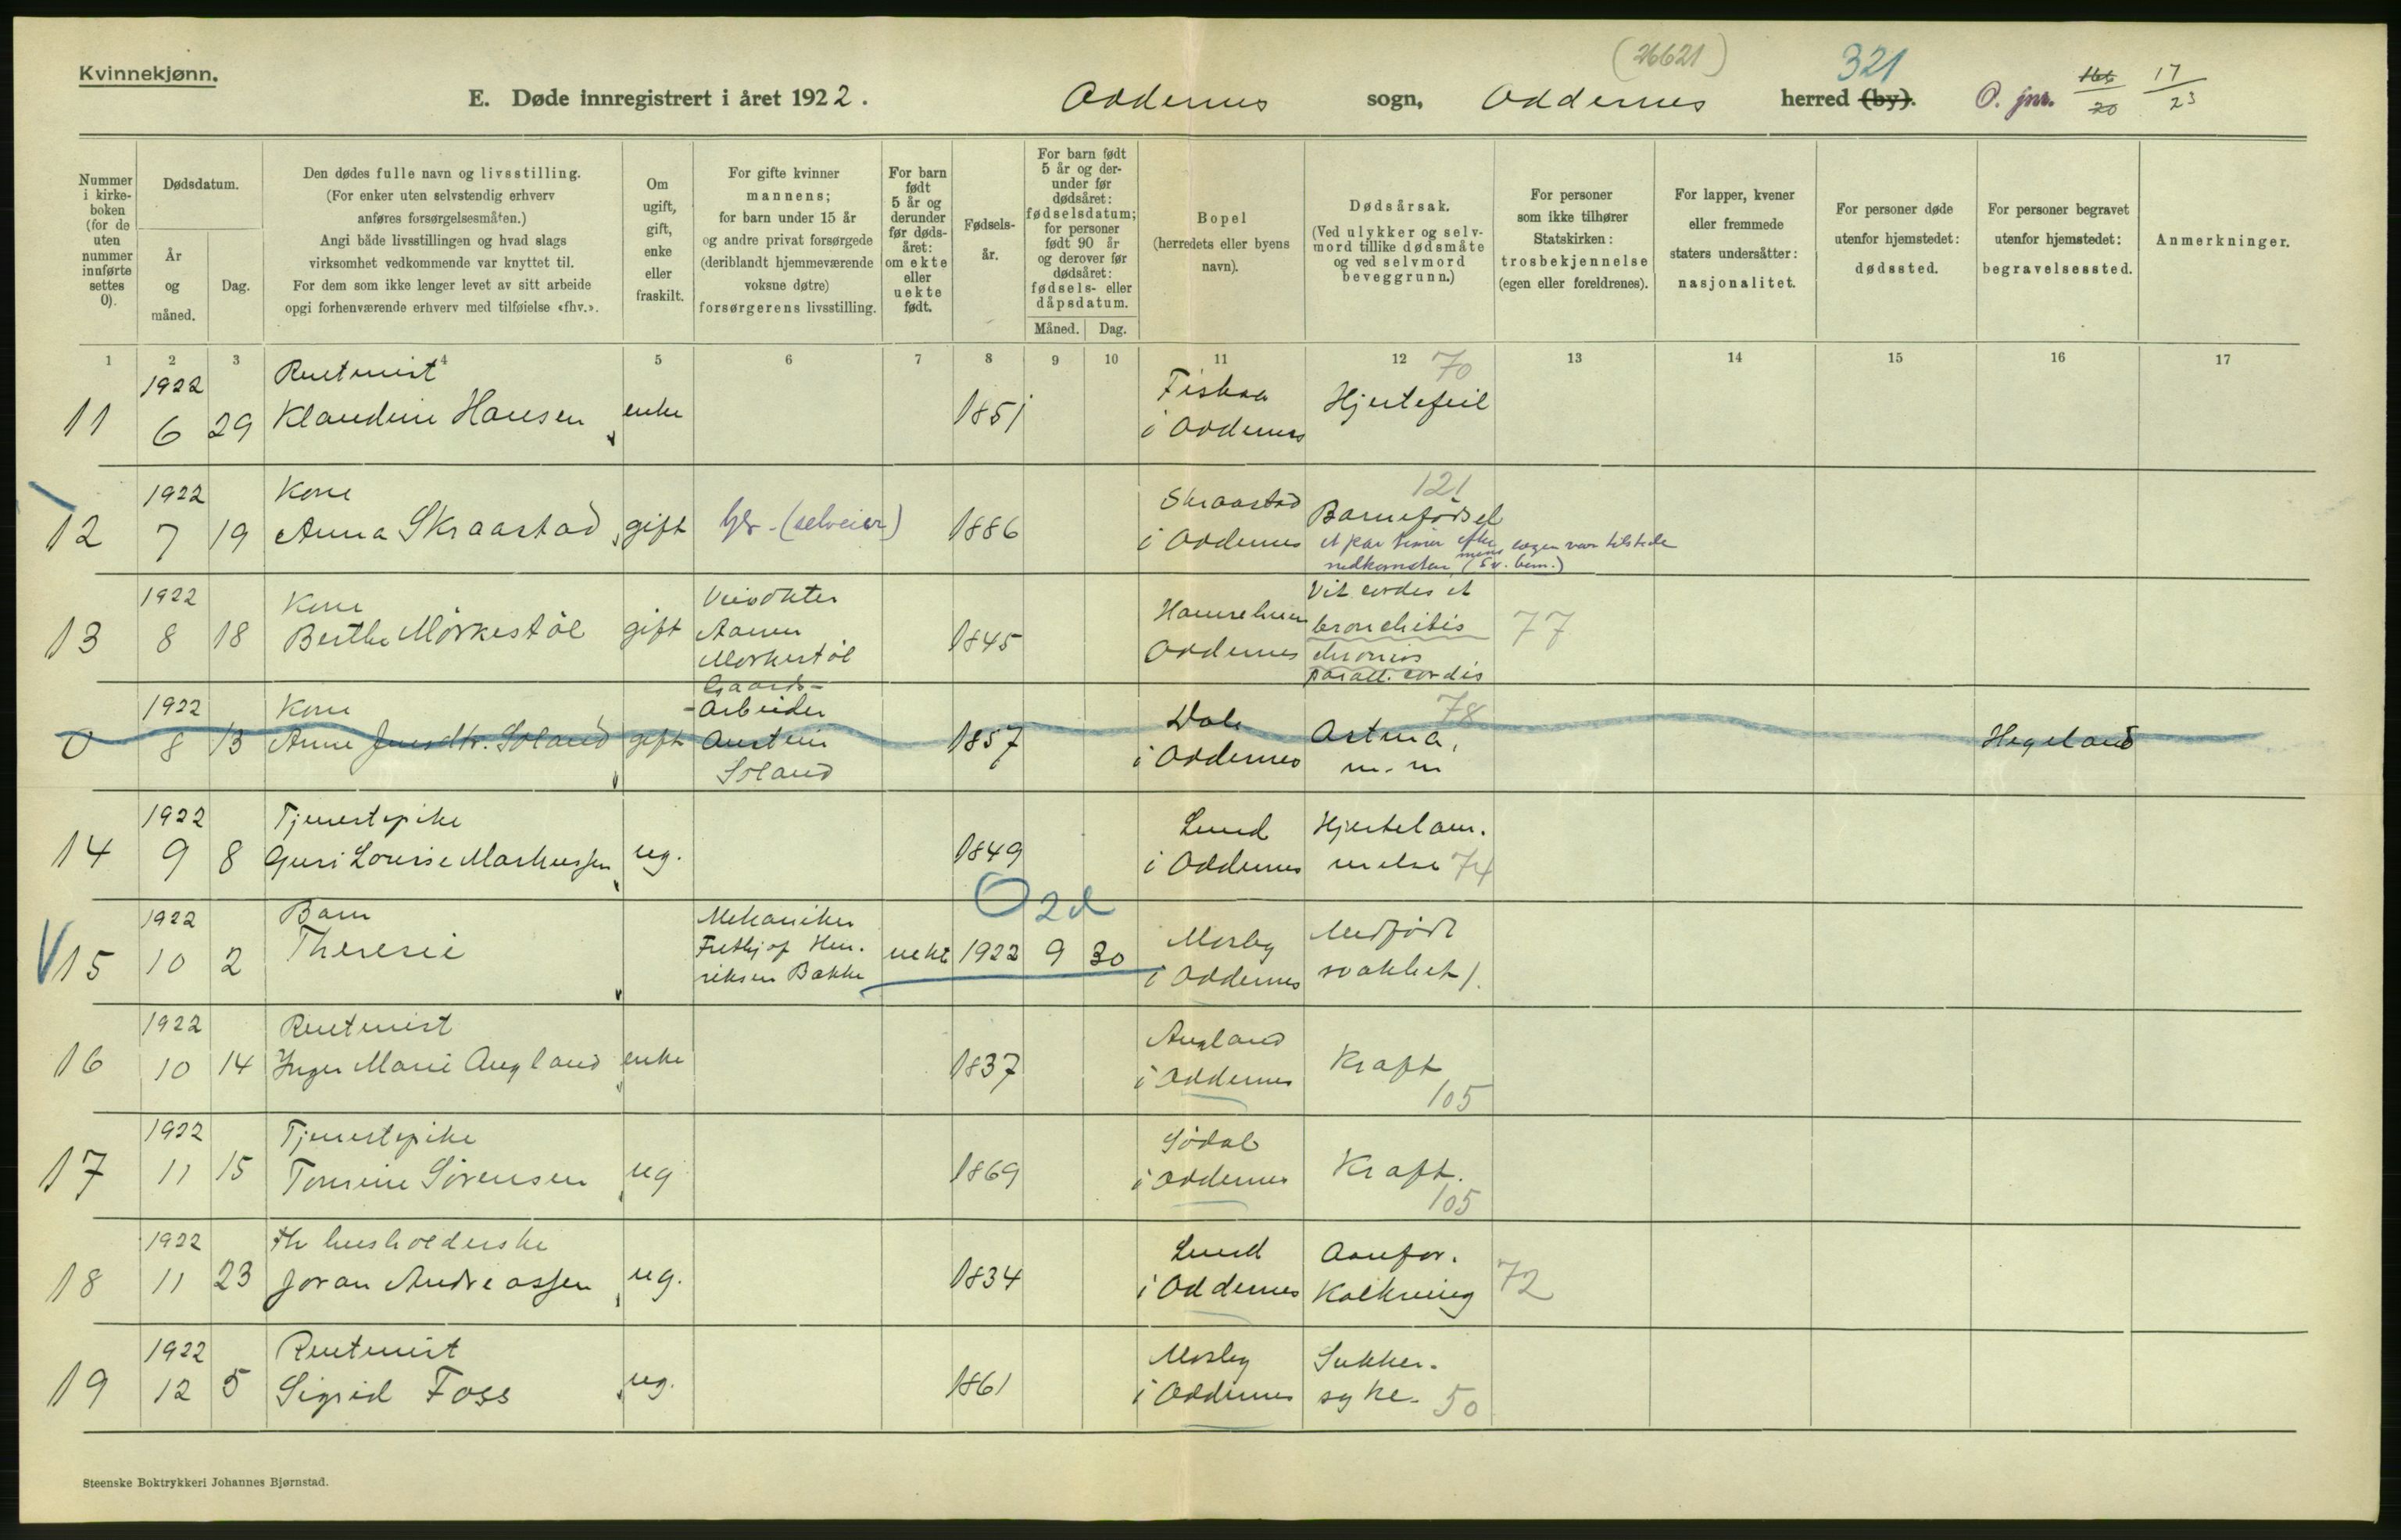 Kvinnekjønn.
(26621)
321
E. Døde innregistrert i året 1922. Oddernes sogn, Oddernes herred (by). O. jnr. 166/20 17/23
Nummer i kirkeboken (for de uten nummer innførte settes 0).
Dødsdatum.
År og måned.
Dag.
Den dødes fulle navn og livsstilling.
(For enker uten selvstendig erhverv
anføres forsørgelsesmåten.)
Angi både livsstillingen og hvad slags
virksomhet vedkommende var knyttet til.
For dem som ikke lenger levet av sitt arbeide
opgi forhenværende erhverv med tilføielse «fhv.».
Om ugift, gift, enke eller fraskilt.
For gifte kvinner
mannens;
for barn under 15 år
og andre privat forsørgede
(deriblandt hjemmeværende
voksne døtre)
forsørgerens livsstilling.
For barn født 5 år og derunder før dødsåret: om ekte eller uekte født.
Fødselsår.
For barn født 5 år og derunder før dødsåret: fødselsdatum; for personer født 90 år og derover før dødsåret: fødsels- eller dåpsdatum.
Måned. Dag.
Bopel
(herredets eller byens
navn).
Dødsårsak.
(Ved ulykker og selvmord tillike dødsmåte
og ved selvmord
beveggrunn.)
For personer
som ikke tilhører
Statskirken:
trosbekjennelse
(egen eller foreldrenes).
For lapper, kvener
eller fremmede
staters undersåtter:
nasjonalitet.
For personer døde
utenfor hjemstedet:
dødssted.
For personer begravet
utenfor hjemstedet:
begravelsessted.
Anmerkninger.
1 2 3 4 5 6 7 8 9 10 11 12 13 14 15 16 17
1922 Rentenist Fiskaa 70
11 6 29 Klaudine Hansen enke 1851 i Oddernes Hjertefeil
1922 Kone Skraastad 121
12 7 19 Anna Skraastad gift (selveier) 1886 i Oddernes Barnefødsel
et par timer efter nedkomsten mens lægen var tilstede
1922 Kone Vit. cordis et
13 8 18 Berthe Mørkestøl gift Mørkestøl 1845 Oddernes bronchitis 77
chronica
paral. cordis
1922 Kone Gaards-
Arbeider Dale 78
0 8 13 Anne Jensdtr. Søland gift Austein 1857 i Oddernes Astma, Hegeland
Søland m.m
1922 Tjenestepike Lund Hjertelam.
14 9 8 Guri Lourise Markussen ug. 1849 i Oddernes melse 74
O 2 d
1922 Barn Mekaniker Mosby Medfødt
15 10 2 Theresie Frithjof Hen. uekt 1922 9 30 i Oddernes svakhet).
riksen Bakke
1922 Rentenist Augland
16 10 14 Inger Marie Augland enke 1837 i Oddernes Kræft
105
1922 Tjenestepike Sødal
17 11 15 Tomine Sørensen ug 1869 i Oddernes Kræft.
105
1922 fh husholderske Lund Aarefor.
18 11 23 Joran Andreassen ug. 1834 i Oddernes Kalkning 72
1922 Rentenist Mosby Sukker.
19 12 5 Sigrid Foss ug. 1861 i Oddernes syke. 50
Steenske Boktrykkeri Johannes Bjørnstad.